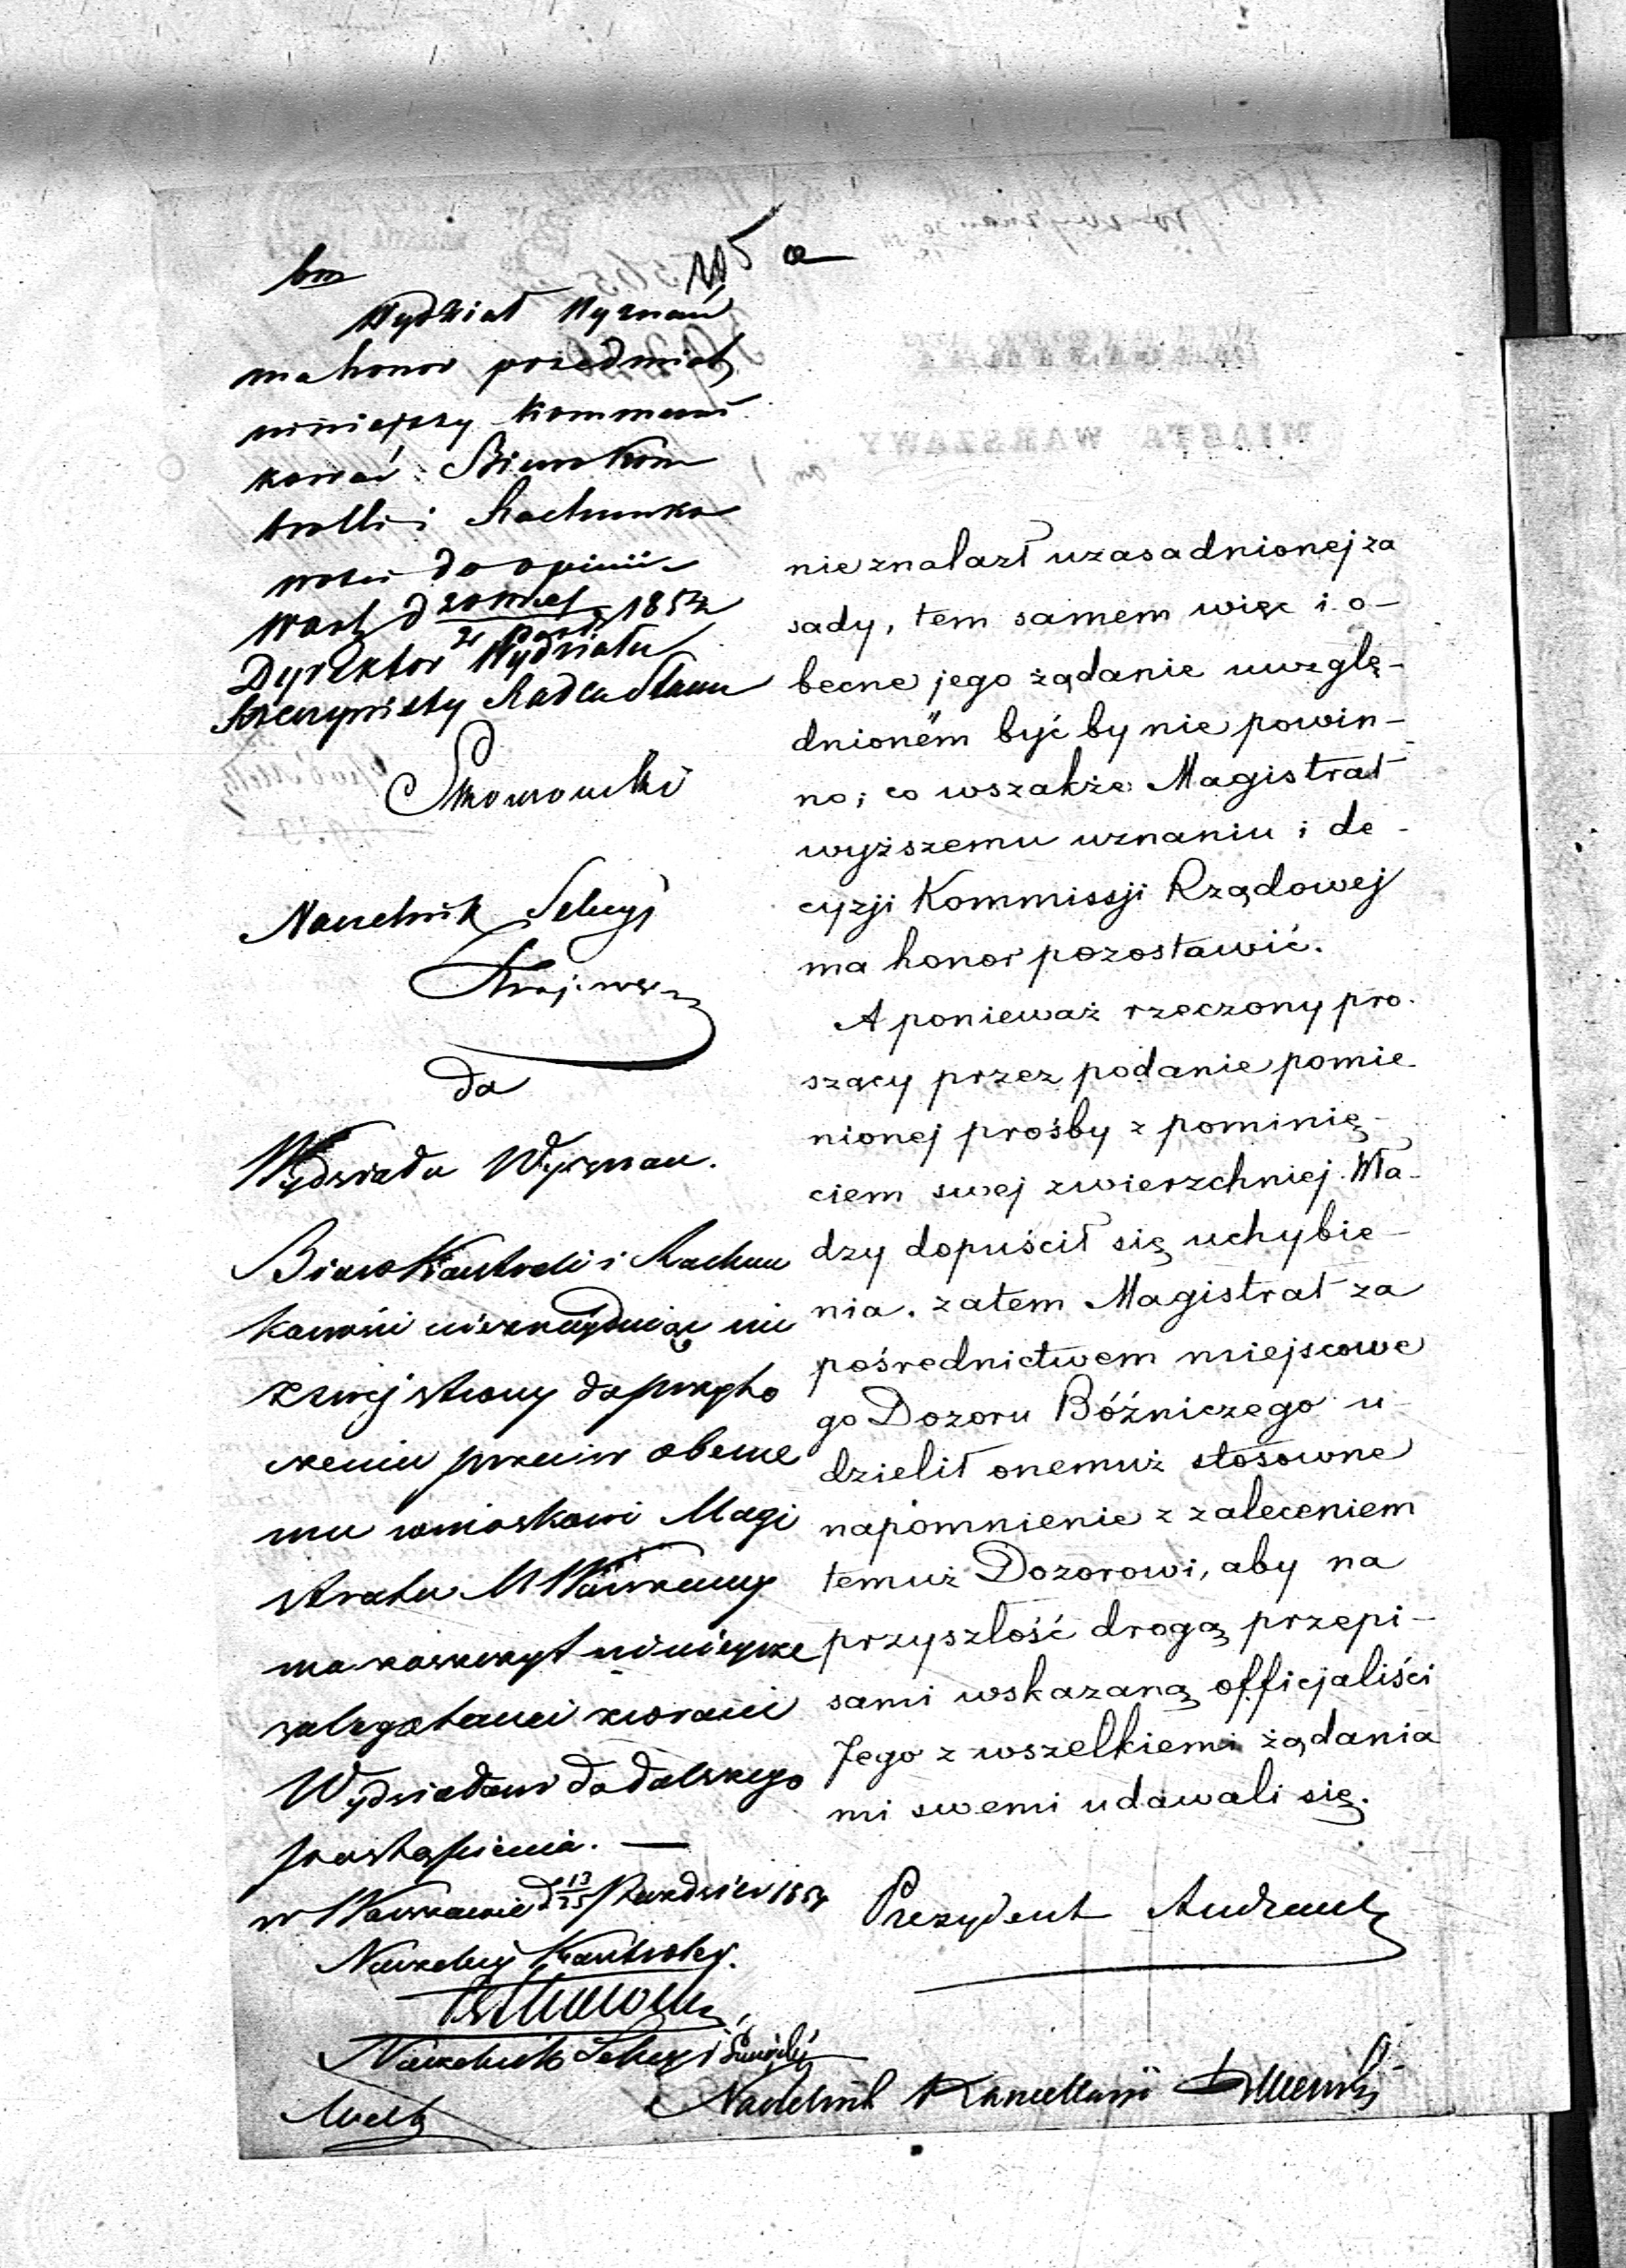 105 a
Wydział Wyznań
ma honor przedmiot
niniejszy kommuni
kować Biuru Kon
trolli i Rachunko
wości do opinii
Warsz d 20 Wrześ 1854
Dyrektor Wydziału
Rzeczywisty Radca Stanu
Naczelnik Sekcyi
do
Wydziału Wyznań.
Biuro Kontroli i Rachun
kowości nieznajdując nic
z swej strony do przyto
czenia przeciw obecne
mu wnioskowi Magi
stratu M Warszawy
ma zaszczyt niniejsze
zwrócić
Wydziałowi do dalszego
postąpienia. —
w Warszawie d 13/25 Paździer 1854
Naczelny Kontroler.
Naczelnik Sekcyi
nie znalazł uzasadnionej za
sady, tem samem więc i o-
becne jego żądanie uwzglę-
dnioném być by nie powin-
no; co wszakże Magistrat
wyższemu uznaniu i de-
cyzji Kommissji Rządowej
ma honor pozostawić.
A ponieważ rzeczony pro-
szący przez podanie pomie-
nionej prośby z pominię-
ciem swej zwierzchniej Wła-
dzy dopuścił się uchybie-
nia. zatem Magistrat za
pośrednictwem miejscowe
go Dozoru Bóźniczego u
dzielił onemuż stosowne
napomnienie z zaleceniem
temuż Dozorowi, aby na
przyszłość drogą przepi-
sami wskazaną officjaliści
Jego z wszelkiemi żądania
mi swemi udawali się.
Prezydent Andrault
Naczelnik Kancellarii